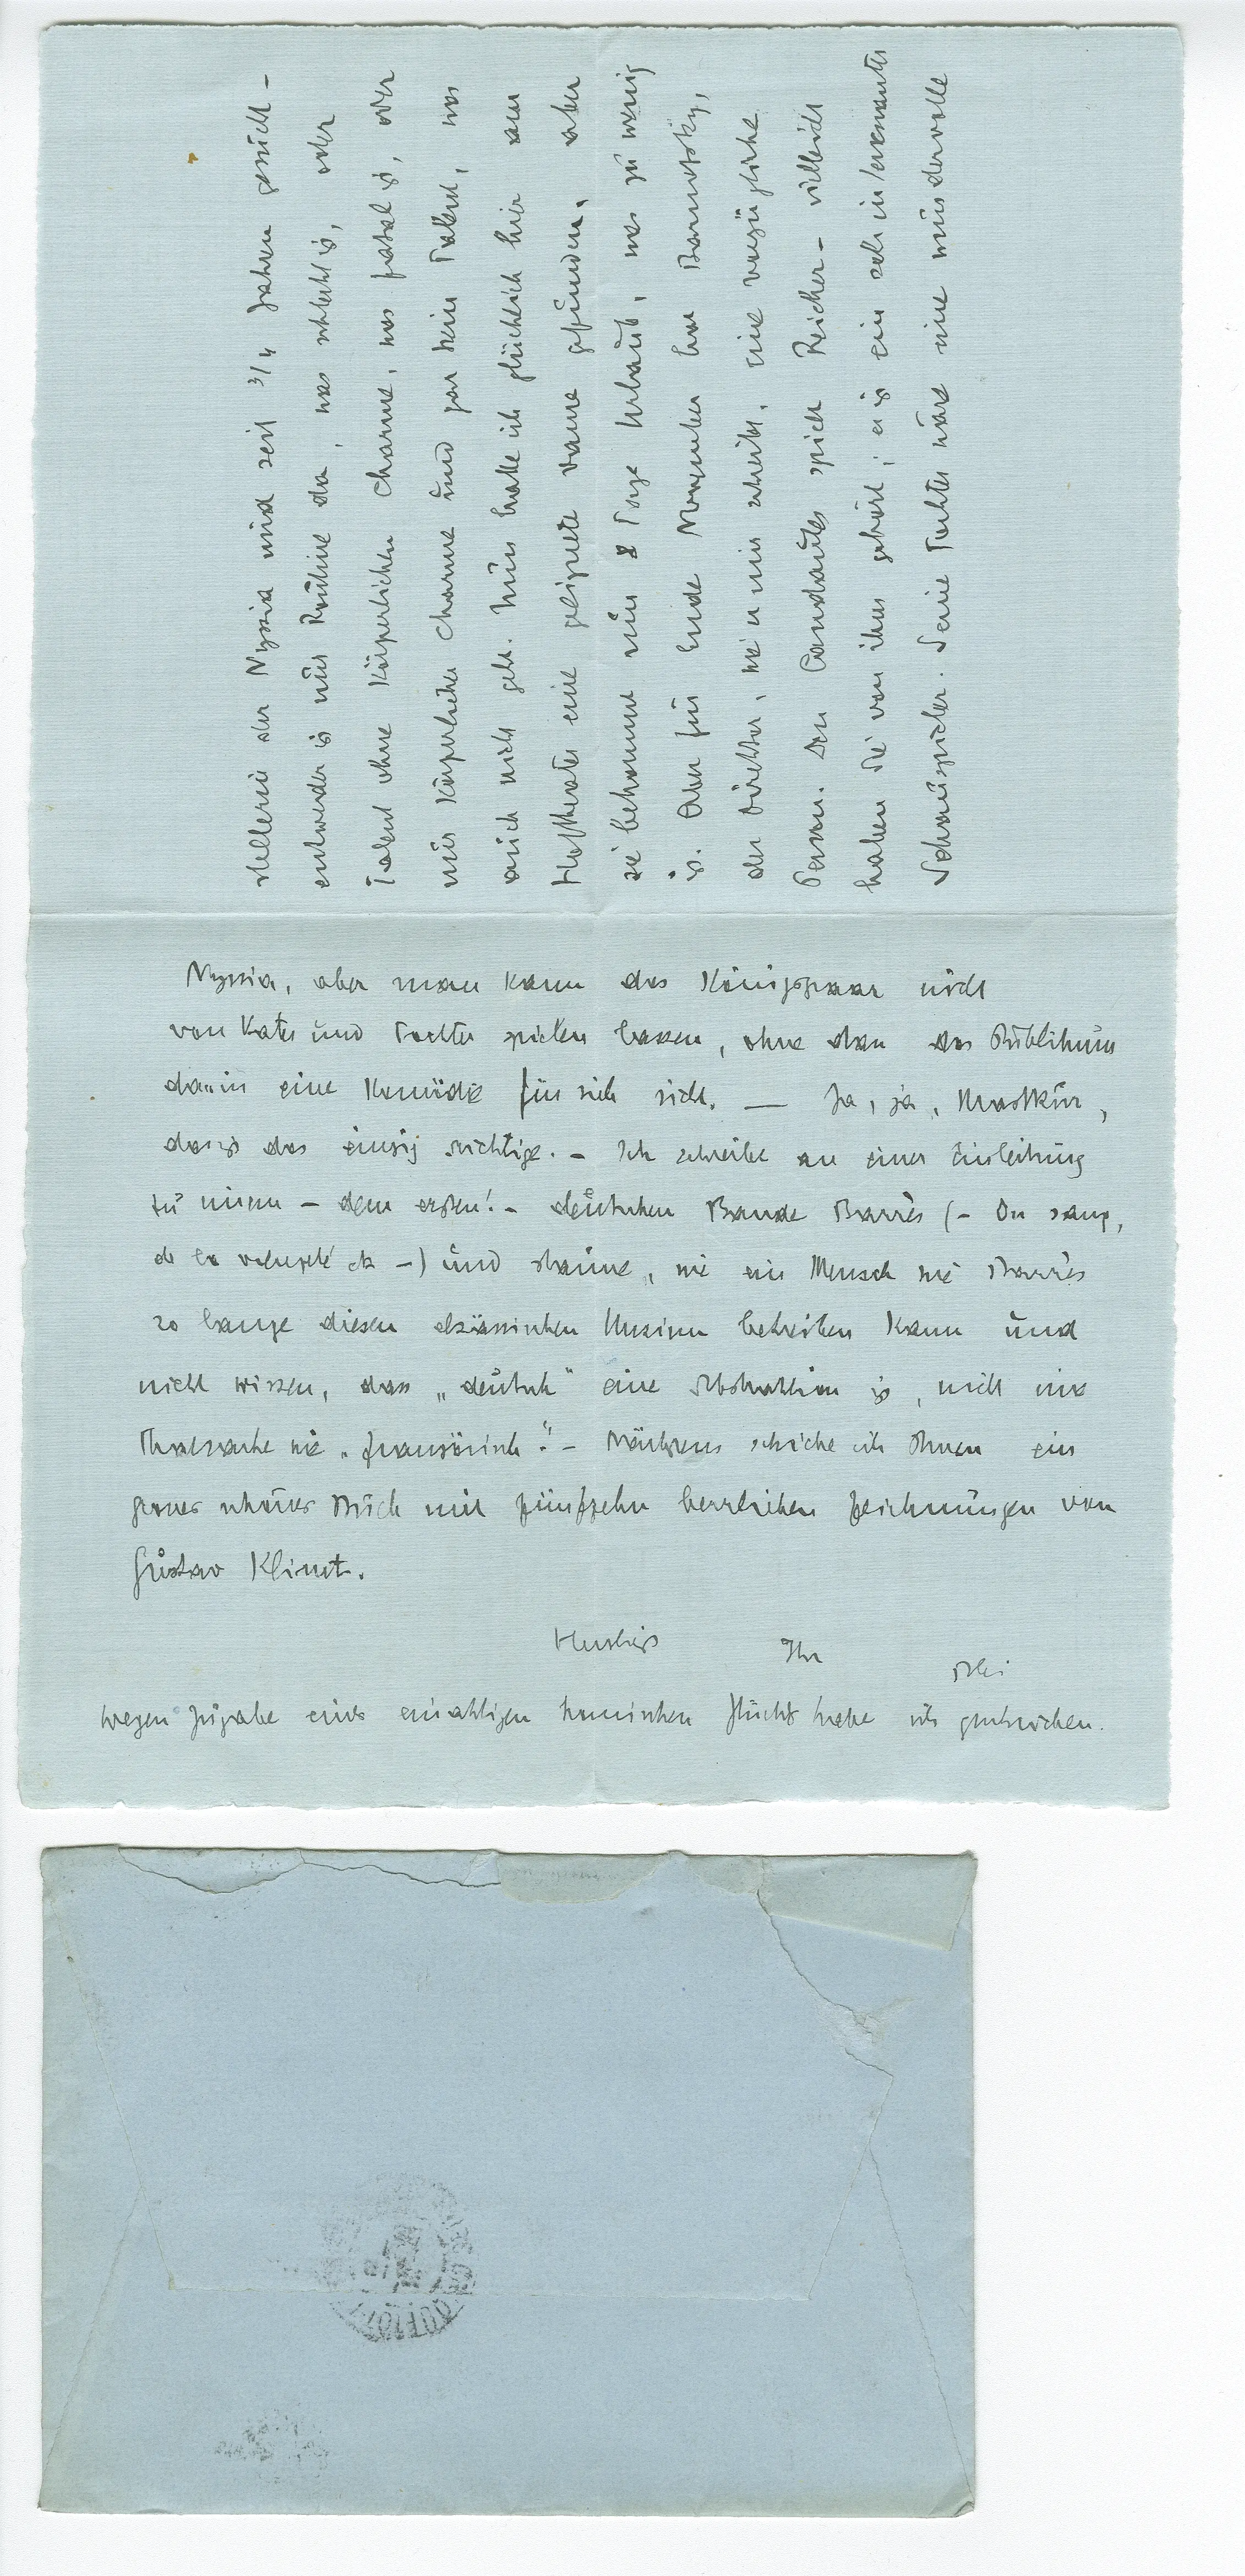 stellerin der Nyssia wird seit 3/4 Jahren gesucht –
entweder is nur Routine da, was schlecht is, oder
Talent ohne Körperlichen Charme, was fatal is, oder
nur Körperlicher Charme und gar kein Talent, was
auch nicht geht. Nun hatte ich glücklich hier am
Hoftheater eine geeignete Dame gefunden, aber
sie bekommt nur 8 Tage Urlaub, was zu wenig
is. Aber für Ende November hat Barnowsky,
der Direktor, wie er mir schreibt, eine vorzügliche
Person. Den Candaules spielt Reicher – vielleicht
haben Sie von ihm gehört; er is ein sehr interessanter
Schauspieler. Seine Tochter wäre eine wundervolle
Nyssia, aber man kann das Königspaar nicht
von Vater und Tochter spielen lassen, ohne dass das Publikum
darin eine Komödie für sich sieht. — Ja, ja,
das is das einzig richtige. – Ich schreibe an einer Einleitung
zu einem – dem ersten! – deutschen Bande Barrès (– Du sang,
de la volupté etc –) und staune, wie ein Mensch wie Barrès
so lange diesen elsässischen Unsinn betreiben kann und
nicht wissen, dass „deutsch“ eine Abstraktion is, nicht eine
Thatsache wie „französisch“. – Nächstens schicke ich Ihnen ein
schönes Buch mit fünfzehn herrlichen Zeichnungen von
Gustav Klimt.
Herzlichst Ihr Blei
wegen Zugabe eines einaktigen komischen Stücks habe ich gestrichen.